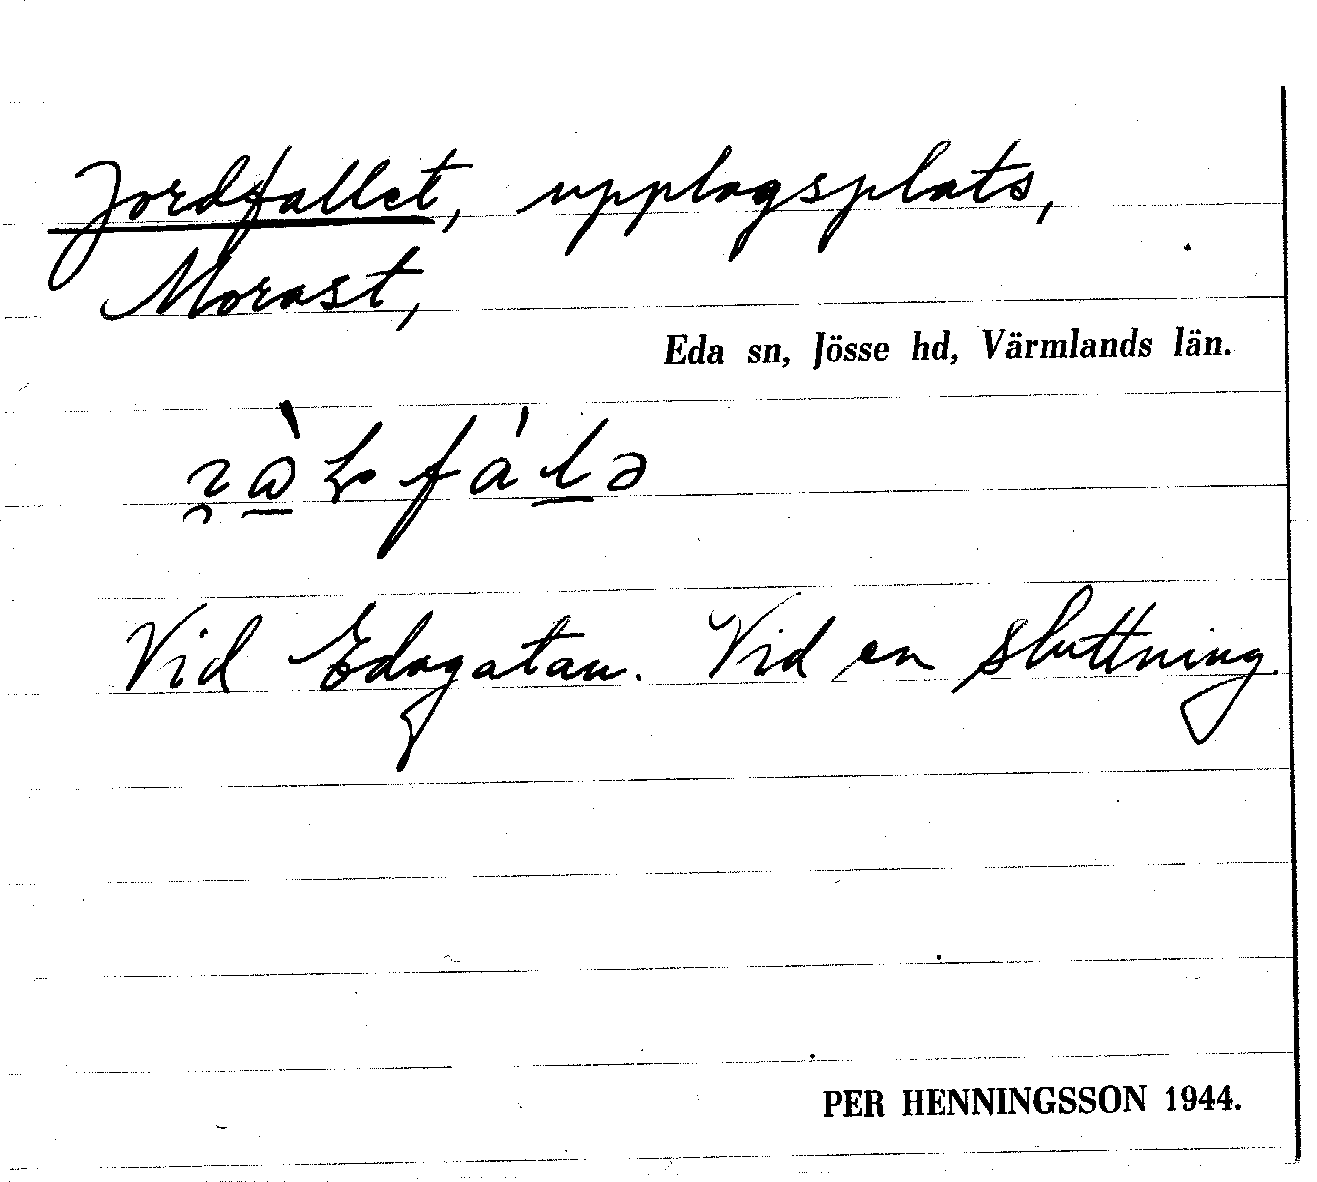 Jordfallet, upplagsplats,
Morast,
Eda sn, Jösse hd, Värmlands län.
Vid Edagatan. Vid en sluttning.
PER HENNINGSSON 1944.